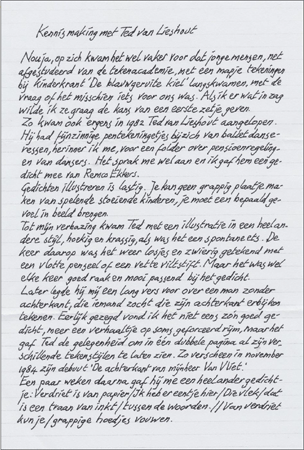 Kennismaking met Ted van Lieshout
Nou ja, op zich kwam het wel vaker voor dat jonge mensen, net
afgestudeerd van de tekenacademie, met een mapje tekeningen
bij kinderkrant 'De blauwgeruite kiel' langskwamen, met de
vraag of het misschien iets voor ons was. Als ik er wat in zag
wilde ik ze graag de kans van een eerste zetje geven.
Zo kwam ook ergens in 1982 Ted van Lieshout aangelopen.
Hij had fijnzinnige pentekeningetjes bij zich van balletdanse-
ressen, herinner ik me, voor een folder over pensioenregeling-
en van dansers. Het sprak me wel aan en ik gaf hem een ge-
dicht mee van Remco Ekkers.
Gedichten illustreren is lastig. Je kun geen grappig plaatje ma-
ken van spelende stoeiende kinderen, je moet een bepaald ge-
voel in beeld brengen.
Tot mijn verbazing kwam Ted met een illustratie in een heel an-
dere stijl, hoekig en krassig, als was het een spontane ets. De
keer daarop was het weer losjes en zwierig getekend met
een vlotte penseel of een vette viltstift. Maar het was wel
elke keer goed raak en mooi passend bij het gedicht.
Later legde hij mij een lang vers voor over een man zonder
achterkant, die iemand zocht die zijn achterkant erbij kon
tekenen. Eerlijk gezegd vond ik het niet eens zo'n goed ge-
dicht, meer een verhaaltje op soms geforceerd rijm, maar het
gaf Ted de gelegenheid om in één dubbele pagina al zijn ver-
schillende tekenstijlen te laten zien. Zo verscheen in november
1984 zijn debuut 'De achterkant van mijnheer Van Vliet.'
Een paar weken daarna gaf hij me een heel ander gedicht-
je: Verdriet is van papier/Ik heb er eentje hier/Die vlek/dat
is een traan van inkt/tussen de woorden.//Van verdriet
kun je/grappige hoedjes vouwen.